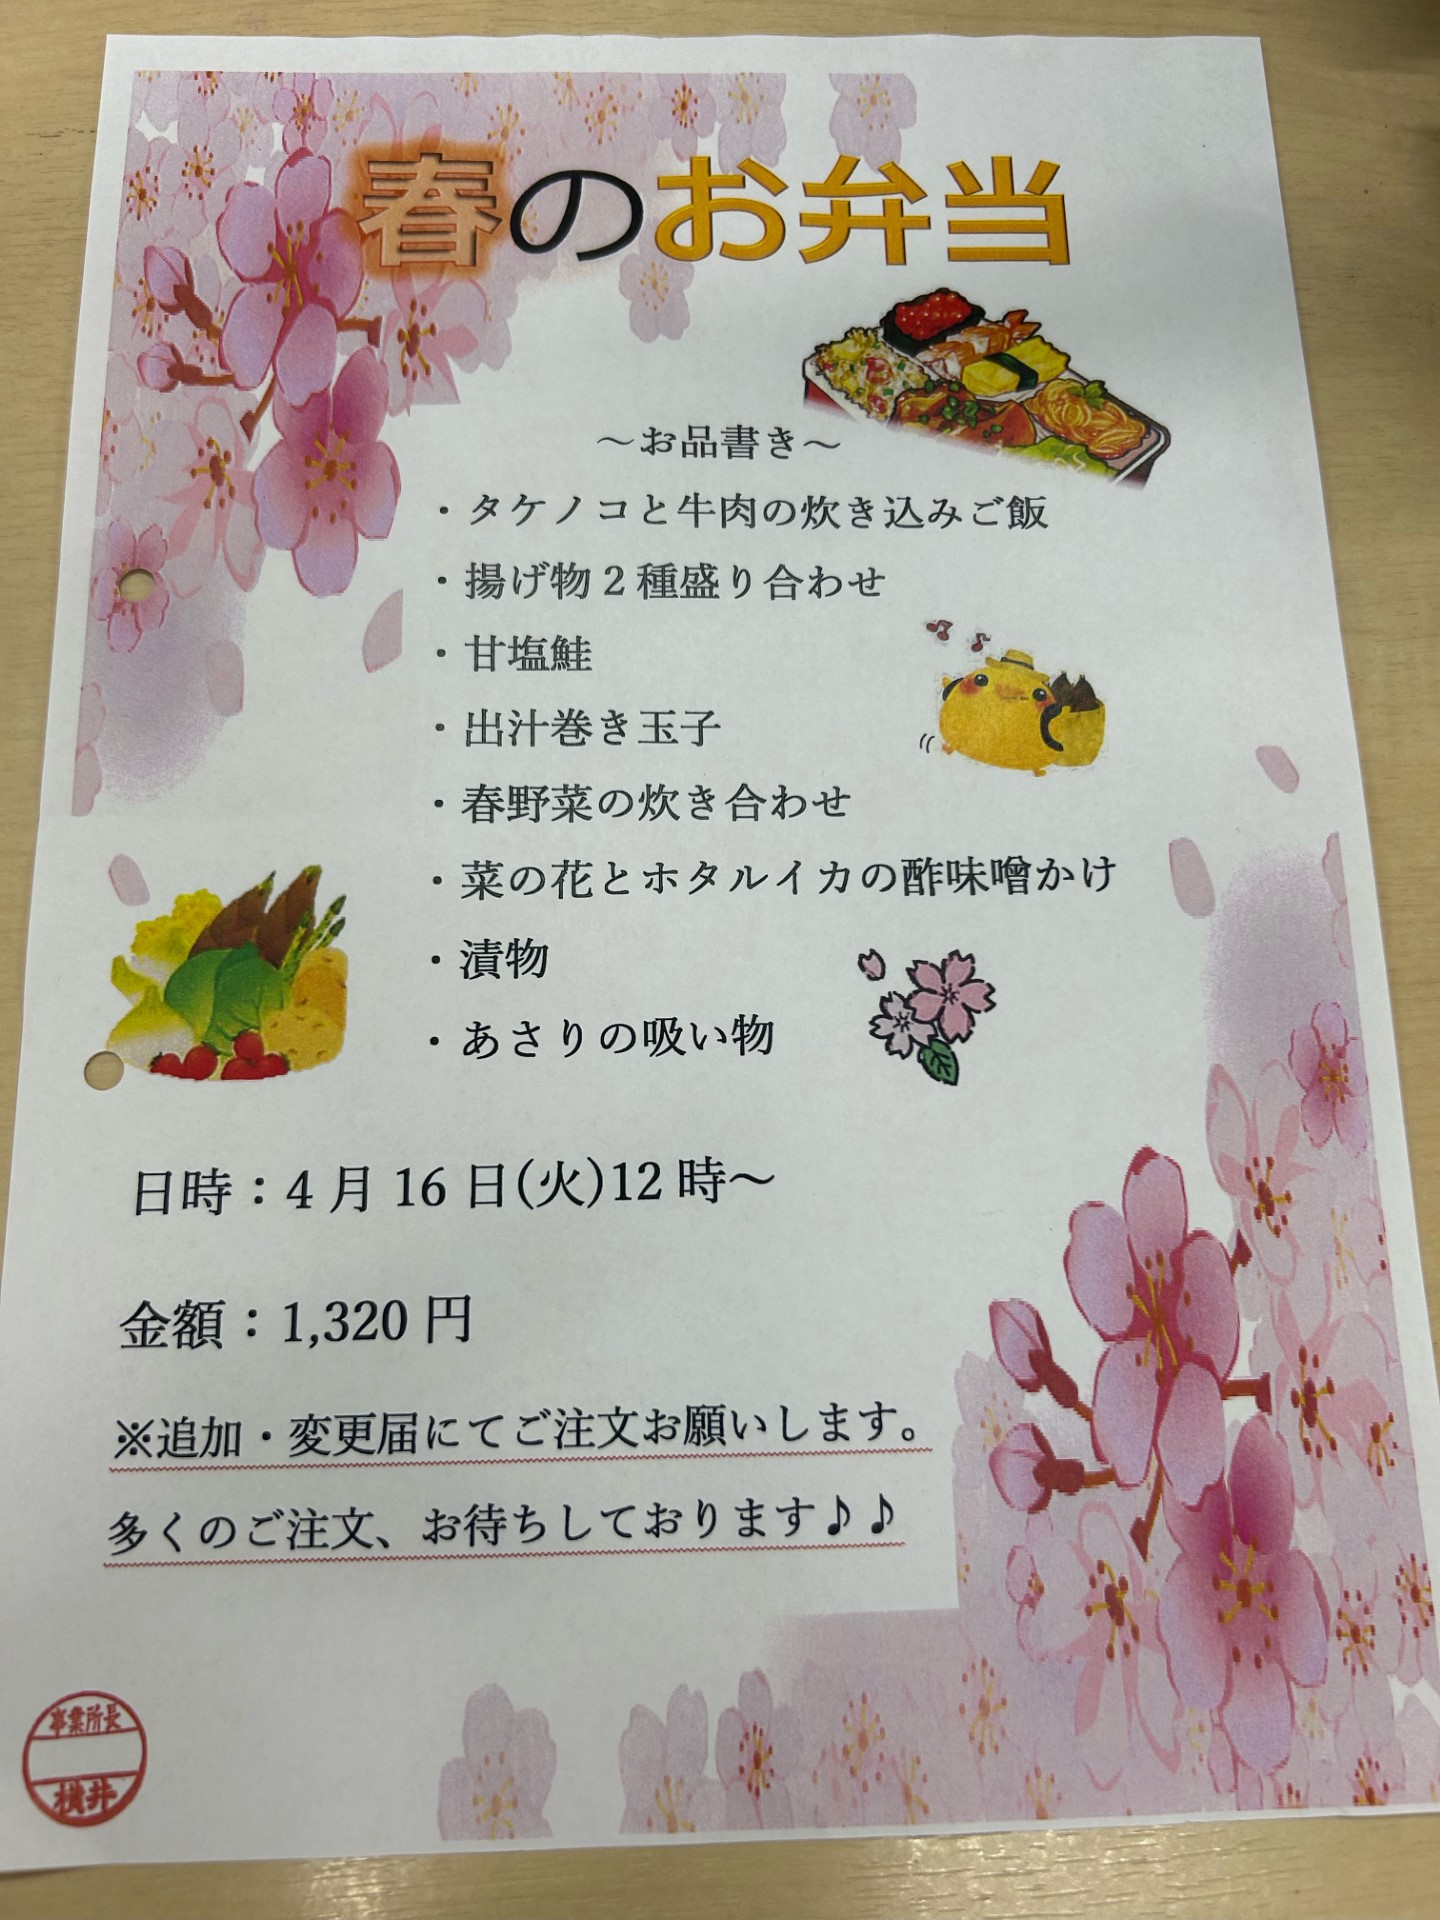 春のお弁当
～お品書き～
・タケノコと牛肉の炊き込みご飯
・揚げ物2種盛り合わせ
・甘塩鮭
・出汁巻き玉子
・春野菜の炊き合わせ
・菜の花とホタルイカの酢味噌かけ
・漬物
・あさりの吸い物
日時：4月16日(火)12時～
金額：1,320円
※追加・変更届にてご注文お願いします。
多くのご注文、お待ちしております♪♪
事業所長
横井